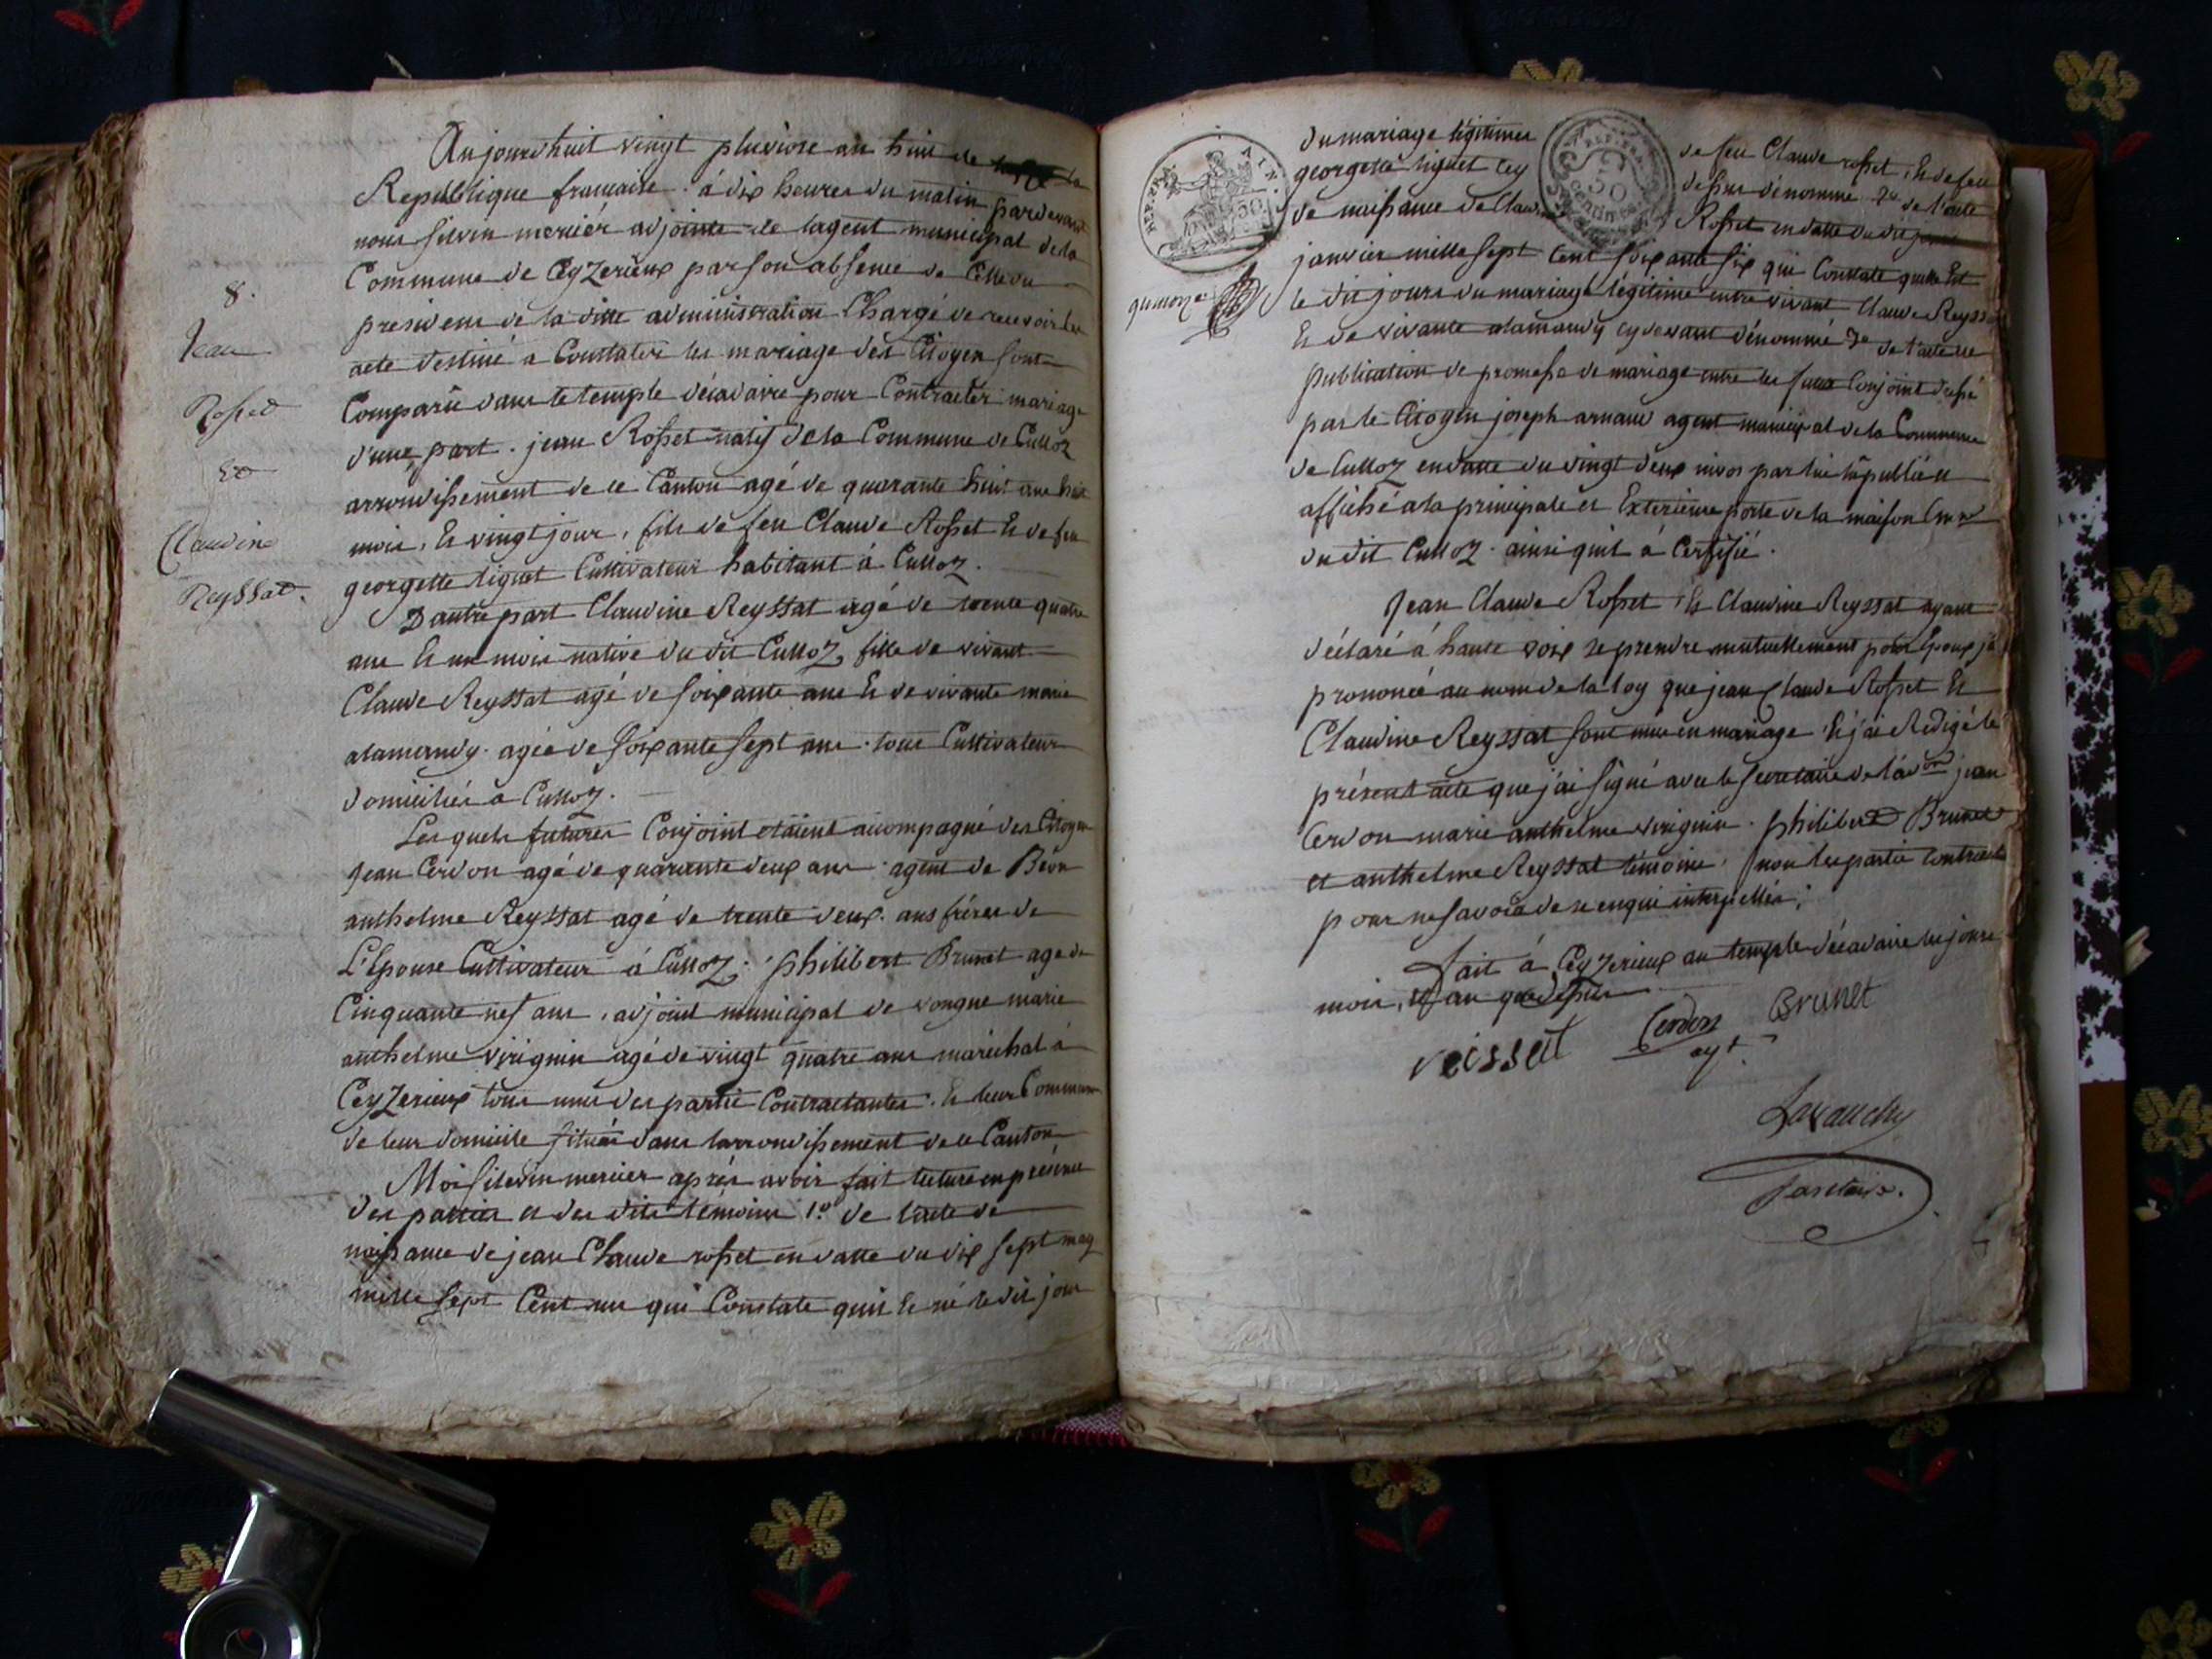 8.
Jean
Rosset
Et
Claudine
Reyssat.
Aujourdhuit vingt pluviose an huit de la
Republique francaise. á dix heures du matin pardevant
nous silvin mercier adjointe de lagent municipal de la
Commune de Ceyzerieux par son absence de Celle du
president de la ditte administration Chargé de recevoir les
acte destiné a Constater les mariage des Citoyen sont
Comparû dans le temple décadaire pour Contracter mariage
d'une part. jean Rosset natif de la Commune de Culloz
arrondissement de ce Canton agé de quarante huit ans huit
mois, Et vingt jour, fils de feu Claude Rosset Et de feu
georgette liguet Cultivateur habitant á Culloz.
D'autre part Claudine Reyssat agé de trente quatre
ans Et un mois native du dit Culloz, fille de vivant
Claude Reyssat agé de soixante ans Et de vivante marie
alamerndy. agée de soixante sept ans. tous Cultivateur
domiciliés a Culloz.
Les quels futures Conjoint etaient accompagné des Citoyen
Jean Cerdon agé de quarante deux ans. agent de Béon
anthelme Reyssat agé de trente deux. ans fréres de
L'Epouse Cultivateur á Culloz. philibert Brunet age de
Cinquante nef ans, adjoint municipal de vongne marie
anthelme virignin agé de vingt quatre ans maréchal á
Ceyzerieux tous amis des partie Contractantes. Et leurs Commune
de leur domicile situés dans larrondissement de ce Canton
Moi silevin mercier aprés avoir fait lecture en présence
des parties et des dits témoins 1.º de l'acte de
naissance de jean Claude rosset en datte du dix sept may
mille sept Cent un qui Constate quil Et né le dit jour
du mariage légitimes de feu Claude rosset, Et de feu
georgette liguet Cey dessus dénommé 2º de l'acte
de naissance de Clau Rosset en datte du dit
janvier mille sept cent soixante six qui Constate quelle Est
le dit jours du mariage légitime entre vivant Claude Reyssat
Et de vivante alamandy cy devant dénommé 3º de l'acte de
publication de promesse de mariage entre les futur Conjoint dressé
par le Citoyen joseph arnaud agent municipal de la Commune
de Culloz en datte du vingt deux nivos par lui publié et
affiché a la principale et Exterieure porte de la maison Cmne
du dit Culloz. ainsi quil á Certifié.
Jean Claude Rosset, Et Claudine Reyssat ayant
déclaré á haute voix se prendre mutuellement pour Epoux jé
prononcé au nom de la loy que jean Claude Rosset Et
Claudine Reyssat sont unis en mariage Et j'ai Redigé le
présent acte que j'ai signé avec le secretaire de l'adon jean
Cerdon marie anthelme virignin. philibert Brunet
et anthelme Reyssat témoins, non les partie Contractante
pour ne savoir de ce enqui interpellés;
Fait á Ceyzerieux au temple décadaire les jours
mois, et an que dessus
reissat Cerdon agt. Brunet
Lavauchy